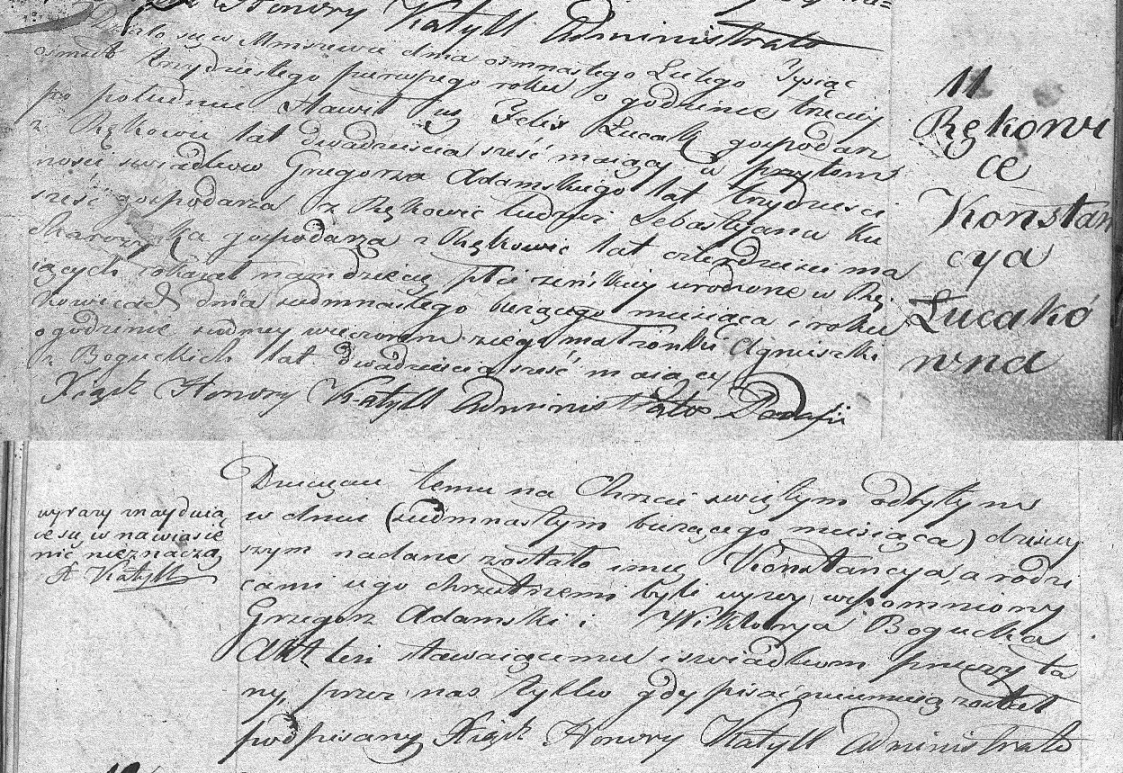 Honory Katyll Administrato
Działo się w Mniszewie dnia osmnastego Lutego Tysiąc
osmset trzydziestego pierwszego roku o godzinie trzeciy
po południu Stawił się Felix Lucak gospodarz
z Rękowic lat dwadziescia szesć maiący w przytom
ności swiadków Grzegorza Adamskiego lat trzydziesci
szesć gospodarza z Rękowic tudzież Sebastyana Ku
charczyka gospodarza z Rękowic lat czterdziesci ma
iących okazał nam dziecię płci żeńskiey urodzone w Rę
kowicach dnia siedmnastego bieżącego miesiąca i roku
o godzinie siodmey wieczorem z iego małżonki Agnieszki
z Boguckich lat dwadziescia szesć maiącey
Xiądz Honory Katyll Administrator Parafii
11
Rękowi
ce
Konstan
cya
Lucakó
wna
Dziecięciu temu na Chrzcie swiętym odbytym
w dniu (siedmnastym bieżącego miesiąca) dzisiey
szym nadane zostało imię Konstancya, a rodzi
cami iego chrzestnemi byli wyzey wspomniony
Grzegorz Adamski i Wiktorya Bogucka
Akt ten stawaiącemu i swiadkom przeczyta
ny, przez nas tylko gdy pisać nieumieią został
podpisany Xiądz Honory Katyll Administrato
wyrazy znayduią
ce się w nawiasie
nic nieznaczą
X Katyll